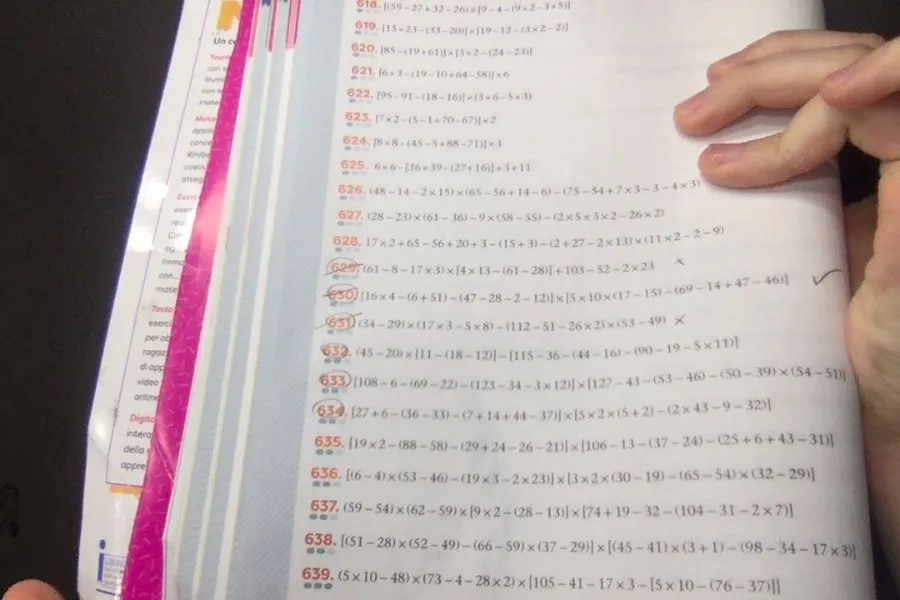 618. [(59-27+32-26)×[9-4-(9×2-3×5)]
619. [15+23-(33-20)]×[19-12-(3×2-2)]
620. [85-(19+61)]×[3×2-(24-23)]
621. [6×3-(19-10+64-58)]×6
622. [95-91-(18-16)]×(3×6-5×3)
623. [7×2-(5-1+70-67)]×2
624. [8×8-(45-5+88-71)]×3
625. 6×6-[36+39-(27+16)]+3+11
626. (48-14-2×15)×(65-56+14-6)-(75-54+7×3-3-4×3)
627. (28-23)×(61-36)-9×(58-55)-(2×5×3×2-26×2)
628. 17×2+65-56+20+3-(15+3)-(2+27-2×13)×(11×2-2-9)
629. (61-8-17×3)×[4×13-(61-28)]+103-52-2×23
630. [16×4-(6+51)-(47-28-2-12)]×[5×10×(17-15)-(69-14+47-46)]
631. (34-29)×(17×3-5×8)-(112-51-26×2)×(53-49)
632. (45-20)×[11-(18-12)]-[115-36-(44-16)-(90-19-5×11)]
633. [108-6-(69-22)-(123-34-3×12)]×[127-43-(53-46)-(50-39)×(54-51)]
634. [27+6-(36-33)-(7+14+44-37)]×[5×2×(5+2)-(2×43-9-32)]
635. [19×2-(88-58)-(29+24-26-21)]×[106-13-(37-24)-(25+6+43-31)]
636. [(6-4)×(53-46)-(19×3-2×23)]×[3×2×(30-19)-(65-54)×(32-29)]
637. (59-54)×(62-59)×[9×2-(28-13)]×[74+19-32-(104-31-2×7)]
638. [(51-28)×(52-49)-(66-59)×(37-29)]×[(45-41)×(3+1)-(98-34-17×3)]
639. (5×10-48)×(73-4-28×2)×{105-41-17×3-[5×10-(76-37)]}